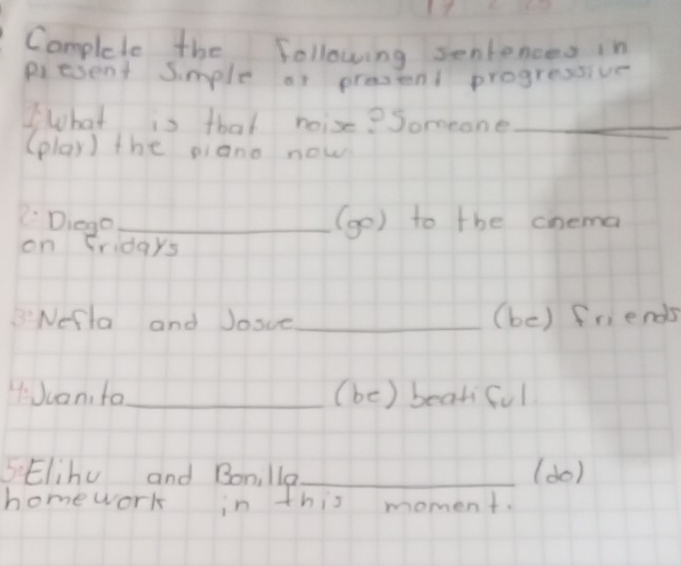 Complete the following sentences in
present simple or present progressive
1: What is that noise? Someone__________
(play) the piano now
2: Diego__________(go) to the cnema
on Fridays
3: Nefta and Josue__________(be) friends
4: Juanita__________(be) beatiful
5: Elihu and Bonilla__________(do)
homework in this moment.